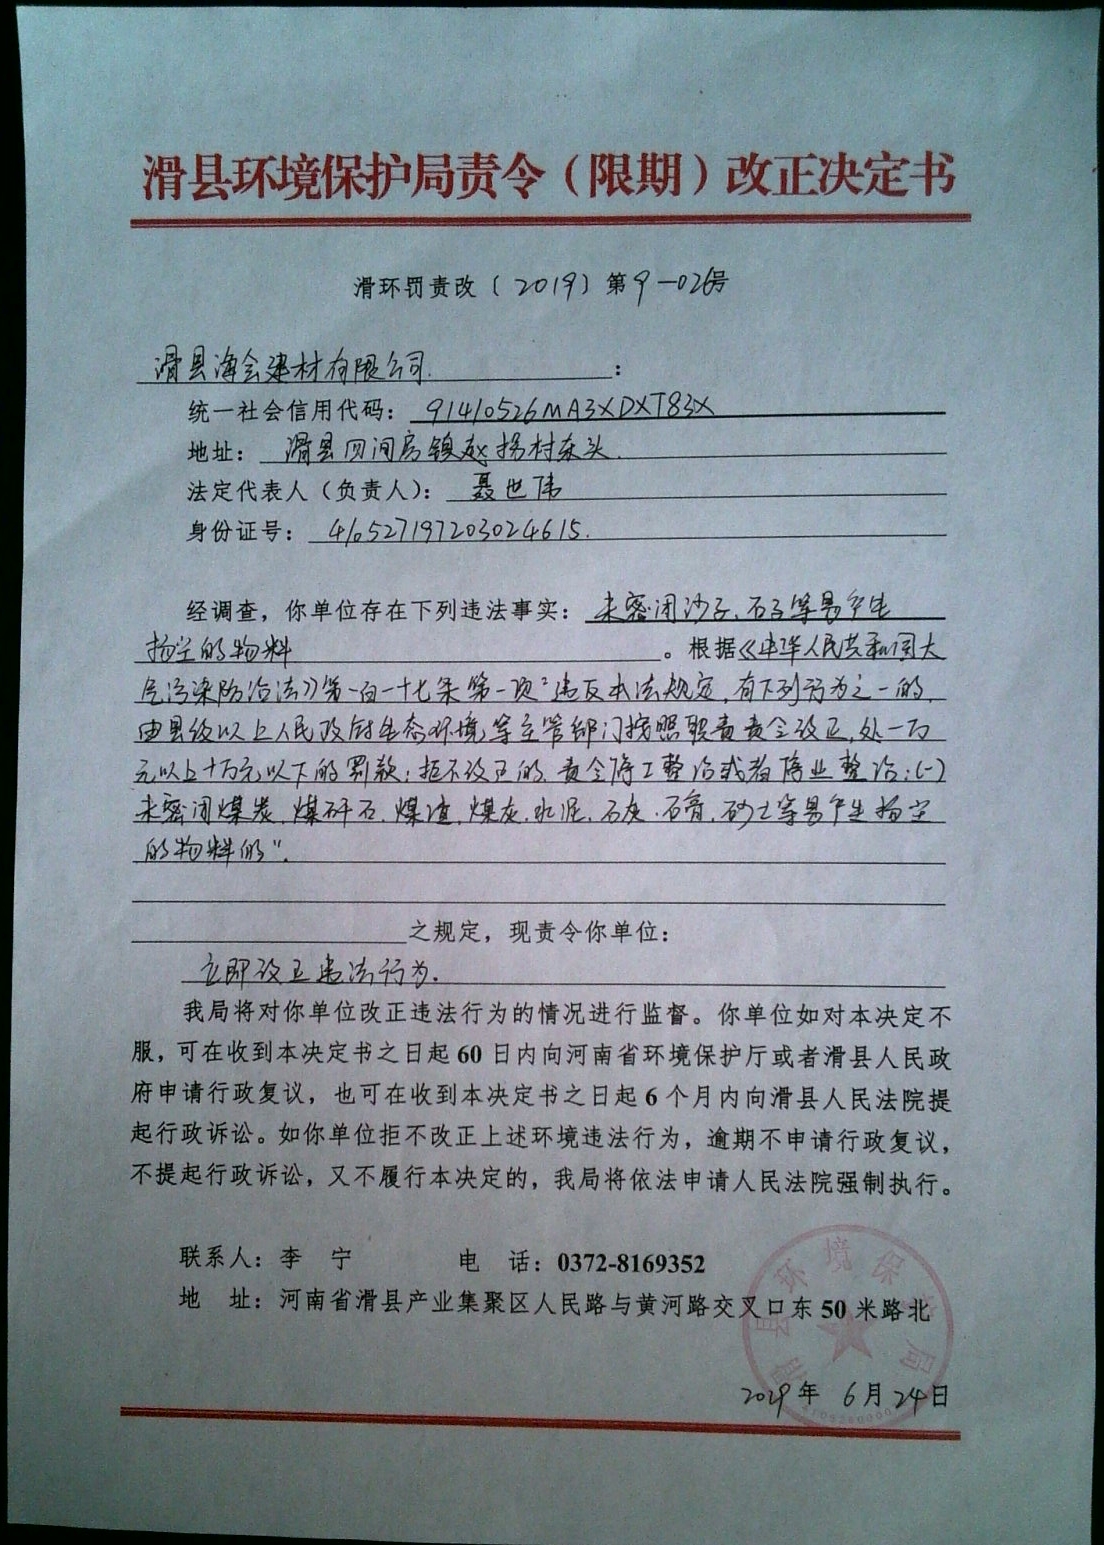 滑县环境保护局责令（限期）改正决定书
滑环罚责改〔2019〕第9-026号
滑县海会建材有限公司：
统一社会信用代码：91410526MA3XDXT83X
地址：滑县四间房镇赵拐村东头
法定代表人（负责人）：聂世伟
身份证号：410527197203024615
经调查，你单位存在下列违法事实：未密闭沙子、石子等易产生
扬尘的物料。根据《中华人民共和国大
气污染防治法》第一百一十七条第一项“违反本法规定，有下列行为之一的，
由县级以上人民政府生态环境等主管部门按照职责责令改正，处一万
元以上十万元以下的罚款；拒不改正的，责令停工整治或者停业整治：(一)
未密闭煤炭、煤矸石、煤渣、煤灰、水泥、石灰、石膏、砂土等易产生扬尘
的物料的”.
之规定，现责令你单位：
立即改正违法行为.
我局将对你单位改正违法行为的情况进行监督。你单位如对本决定不
服，可在收到本决定书之日起 60 日内向河南省环境保护厅或者滑县人民政
府申请行政复议，也可在收到本决定书之日起 6 个月内向滑县人民法院提
起行政诉讼。如你单位拒不改正上述环境违法行为，逾期不申请行政复议，
不提起行政诉讼，又不履行本决定的，我局将依法申请人民法院强制执行。
联系人：李 宁 电 话：0372-8169352
地 址：河南省滑县产业集聚区人民路与黄河路交叉口东 50 米路北
滑县环境保护局
2019年 6月24日